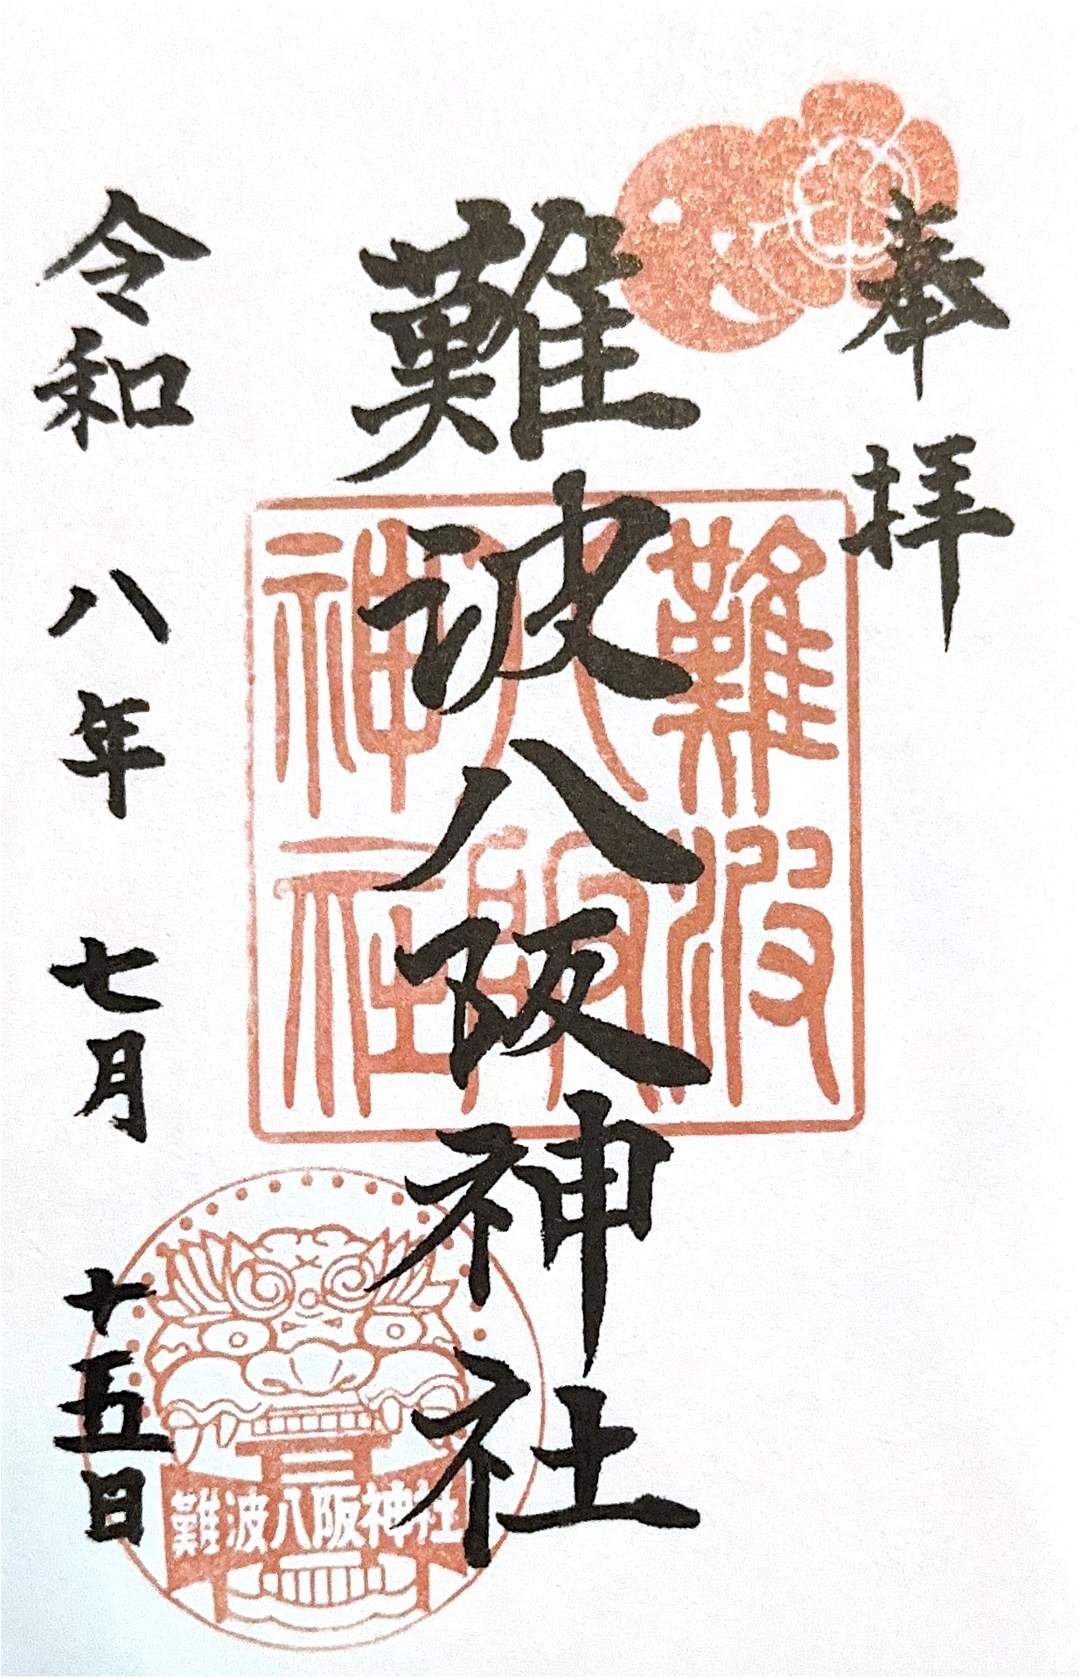 奉拝
難波八阪神社
令和八年七月十五日
難波
八阪
神社
難波八阪神社